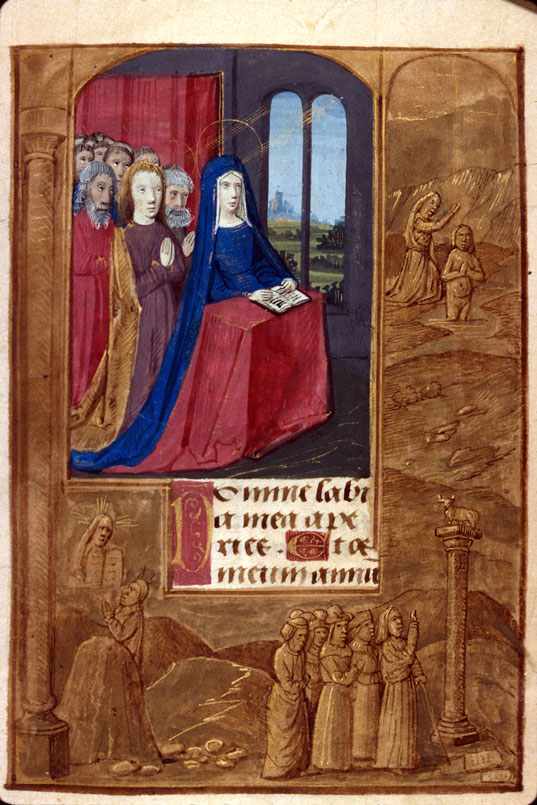 Domine labi
a mea ape
ries. Et os
meum annu